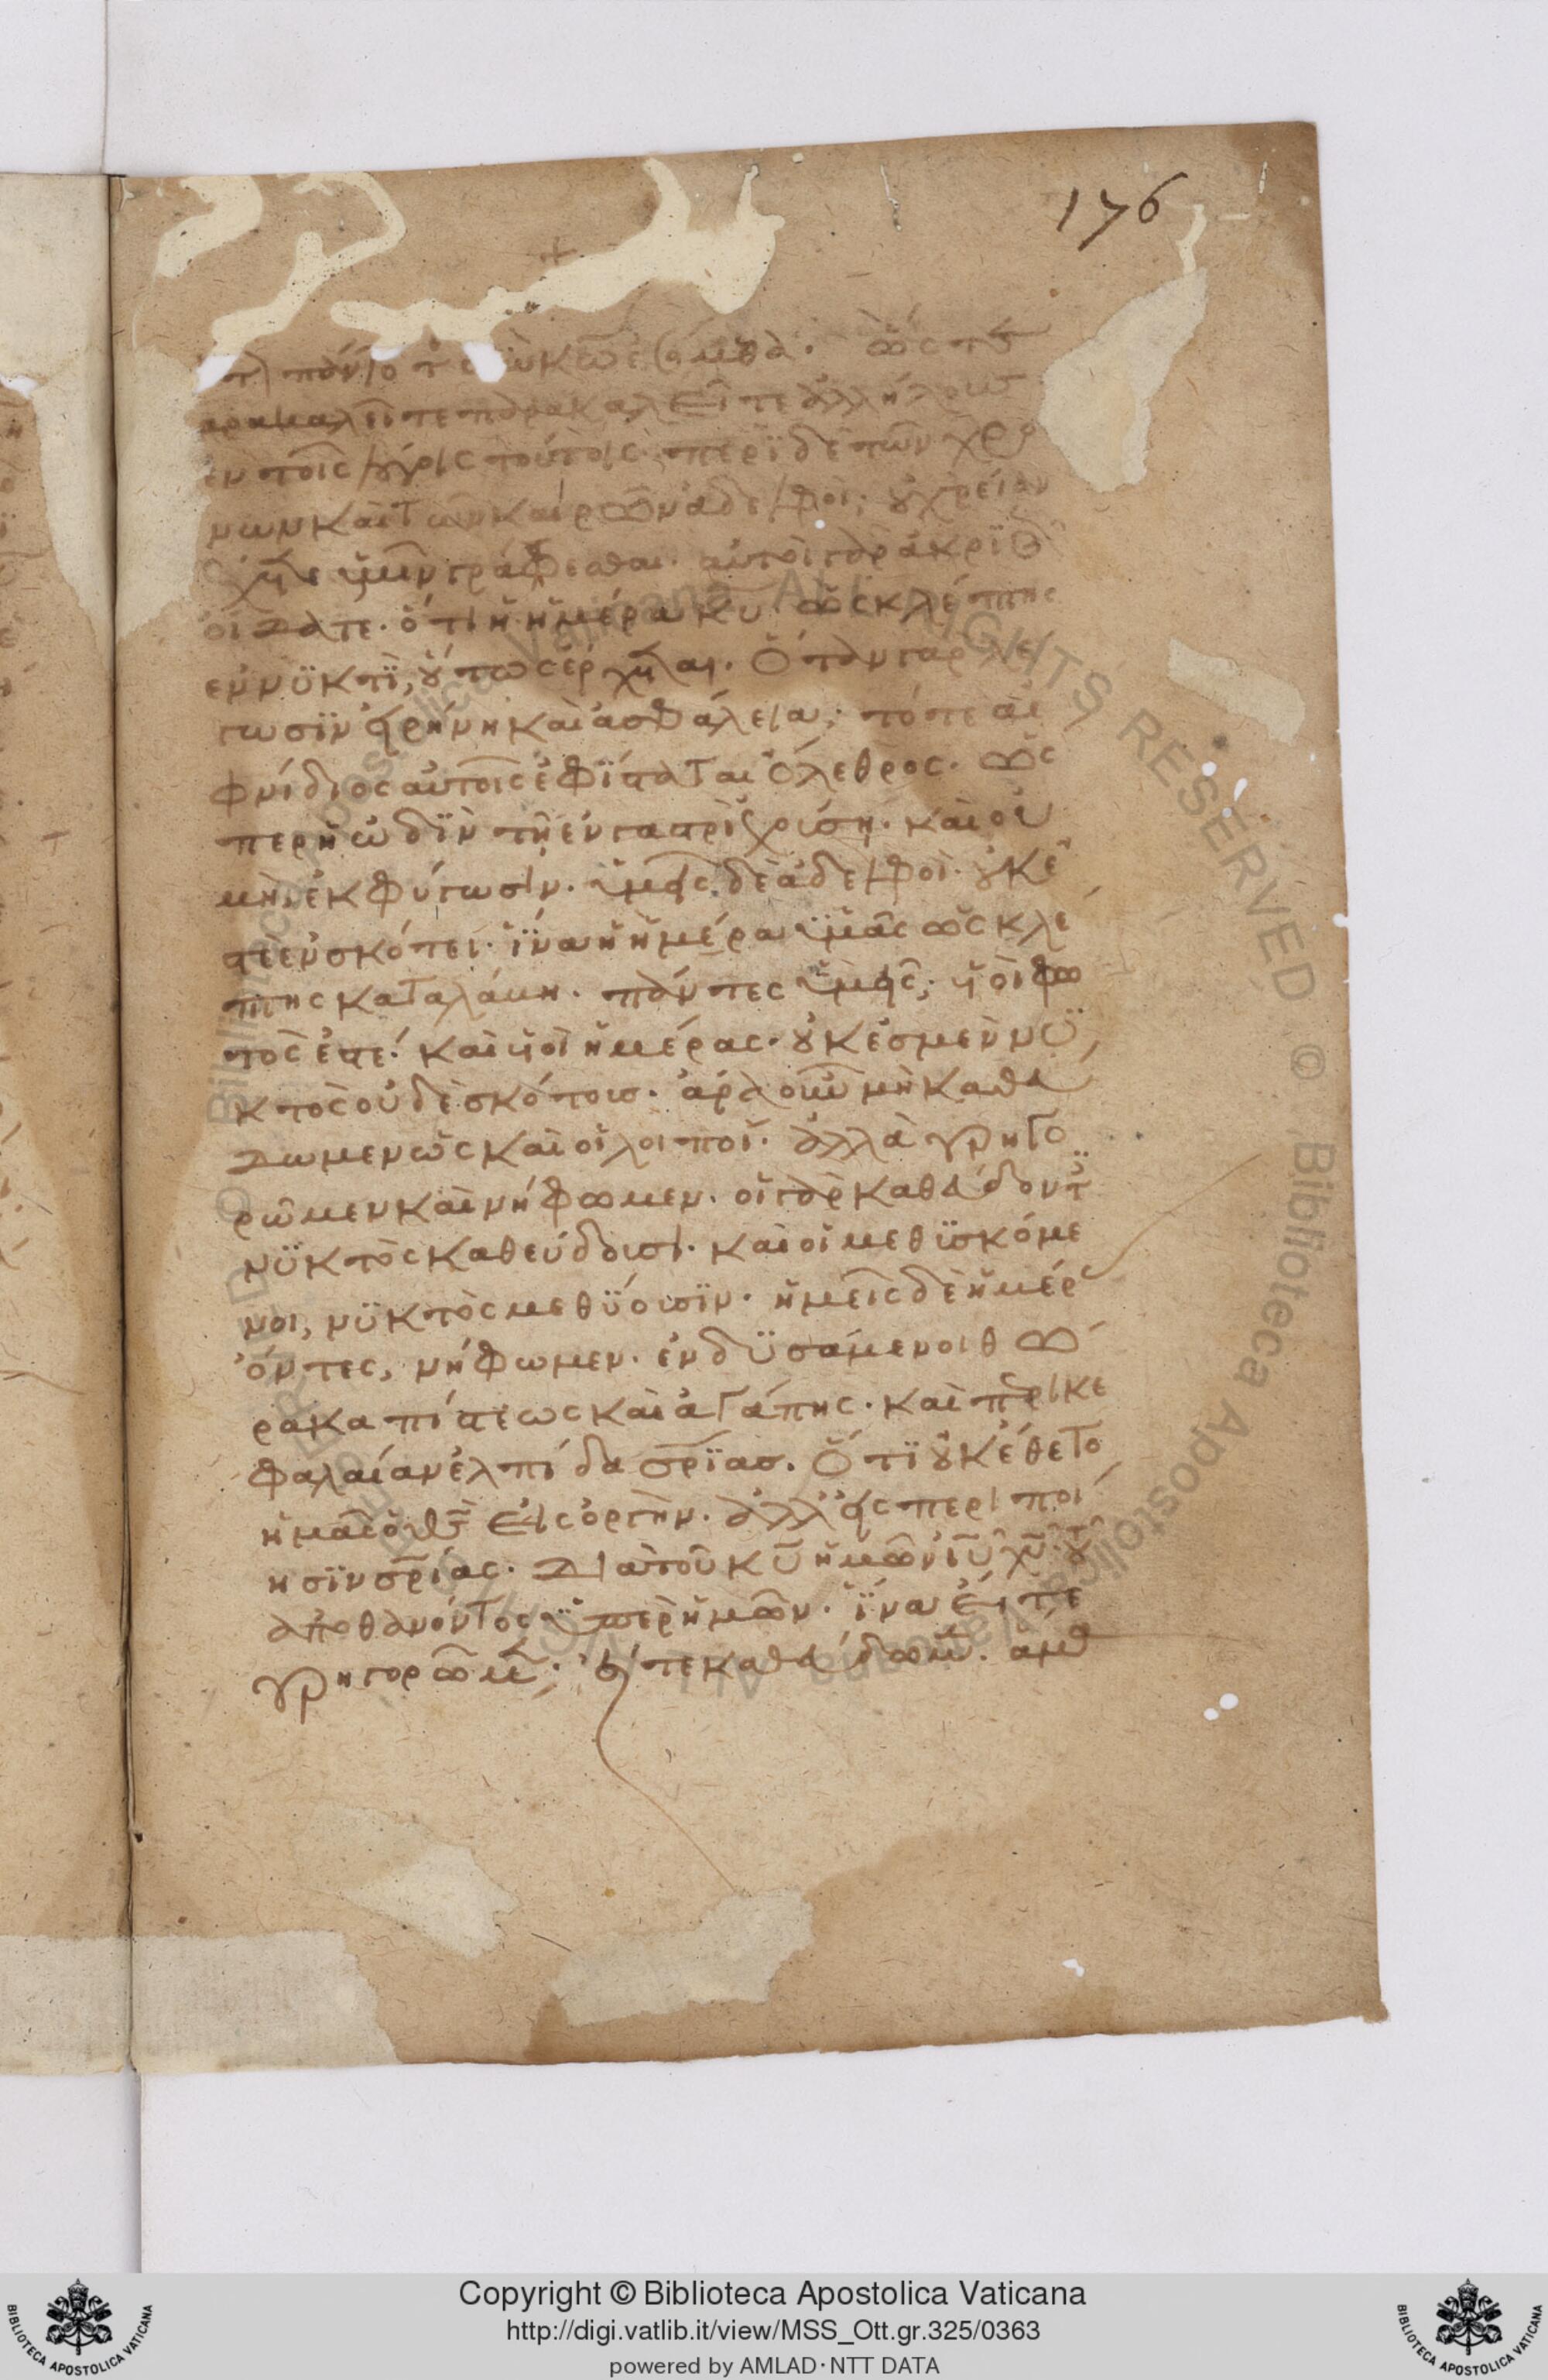 176
+
πάντοτε σὺν κῶ ἐσόμεθα. ὥστε
παρακαλεῖτε παρακαλεῖτε ἀλλήλους
ἐν τοῖς λόγοις τούτοις. περῒ δὲ τῶν χρό
νων καὶ τῶν καιρῶν ἀδελφοί, οὐ χρείαν
ἔχετε ὑμῖν γράφεσθαι. αὐτοὶ γὰρ ἀκριβῶς
οἴδατε. ὅτι ἡ ἡμέρα κυ. ὡς κλέπτης
ἐν νϋκτῒ, οὕτως ἔρχεται. Ὅταν γὰρ λέ
γωσϊν εἰρήνη καὶ ἀσφάλεια, τότε αἰ
φνίδιος αὐτοῖς ἐφΐσταται ὄλεθρος. ὥς
περ ἡ ὠδῒν τῆ ἐν γαστρῒ ἐχούση. καὶ οὐ
μὴ ἐκφύγωσϊν. ὑμεῖς δὲ ἀδελφοὶ. οὐκ ἐ
στὲ ἐν σκότει. ἵνα ἡ ἡμέρα ὑμᾶς ὡς κλέ
πτης καταλάβη. πάντες ὑμεῖς, υἱοὶ φω
τός ἐστέ. καὶ υἱοὶ ἡμέρας. οὐκ ἐσμὲν νϋ
κτὸς οὐδὲ σκότους. ἄρα οὖν μὴ καθεύ
δωμεν ὡς καὶ οἱ λοιποί. ἀλλὰ γρηγο
ρῶμεν καὶ νήφωμεν. οἱ γὰρ καθεύδοντες
νϋκτὸς καθεύδουσι. καὶ οἱ μεθϋσκόμε
νοι, νϋκτὸς μεθύουσϊν. ἡμεῖς δὲ ἡμέρας
ὄντες, νήφωμεν. ἐνδϋσάμενοι θώ
ρακα πίστεως καὶ ἀγάπης. καὶ περικε
φαλαίαν ἐλπίδα σρΐας. Ὅτϊ οὐκ ἔθετο
ἡμᾶς ὁ θς εἰς ὀργὴν. ἀλλ' εἰς περιποί
ησϊν σρίας. Διὰ τοῦ κυ ἡμῶν ιυ χυ. τοῦ
ἀποθανόντος ὑπὲρ ἡμῶν. ἵνα εἴτε
γρηγορῶμεν, εἴτε καθεύδωμεν. ἅμα
Copyright © Biblioteca Apostolica Vaticana
http://digi.vatlib.it/view/MSS_Ott.gr.325/0363
powered by AMLAD·NTT DATA
BIBLIOTECA APOSTOLICA VATICANA
BIBLIOTECA APOSTOLICA VATICANA